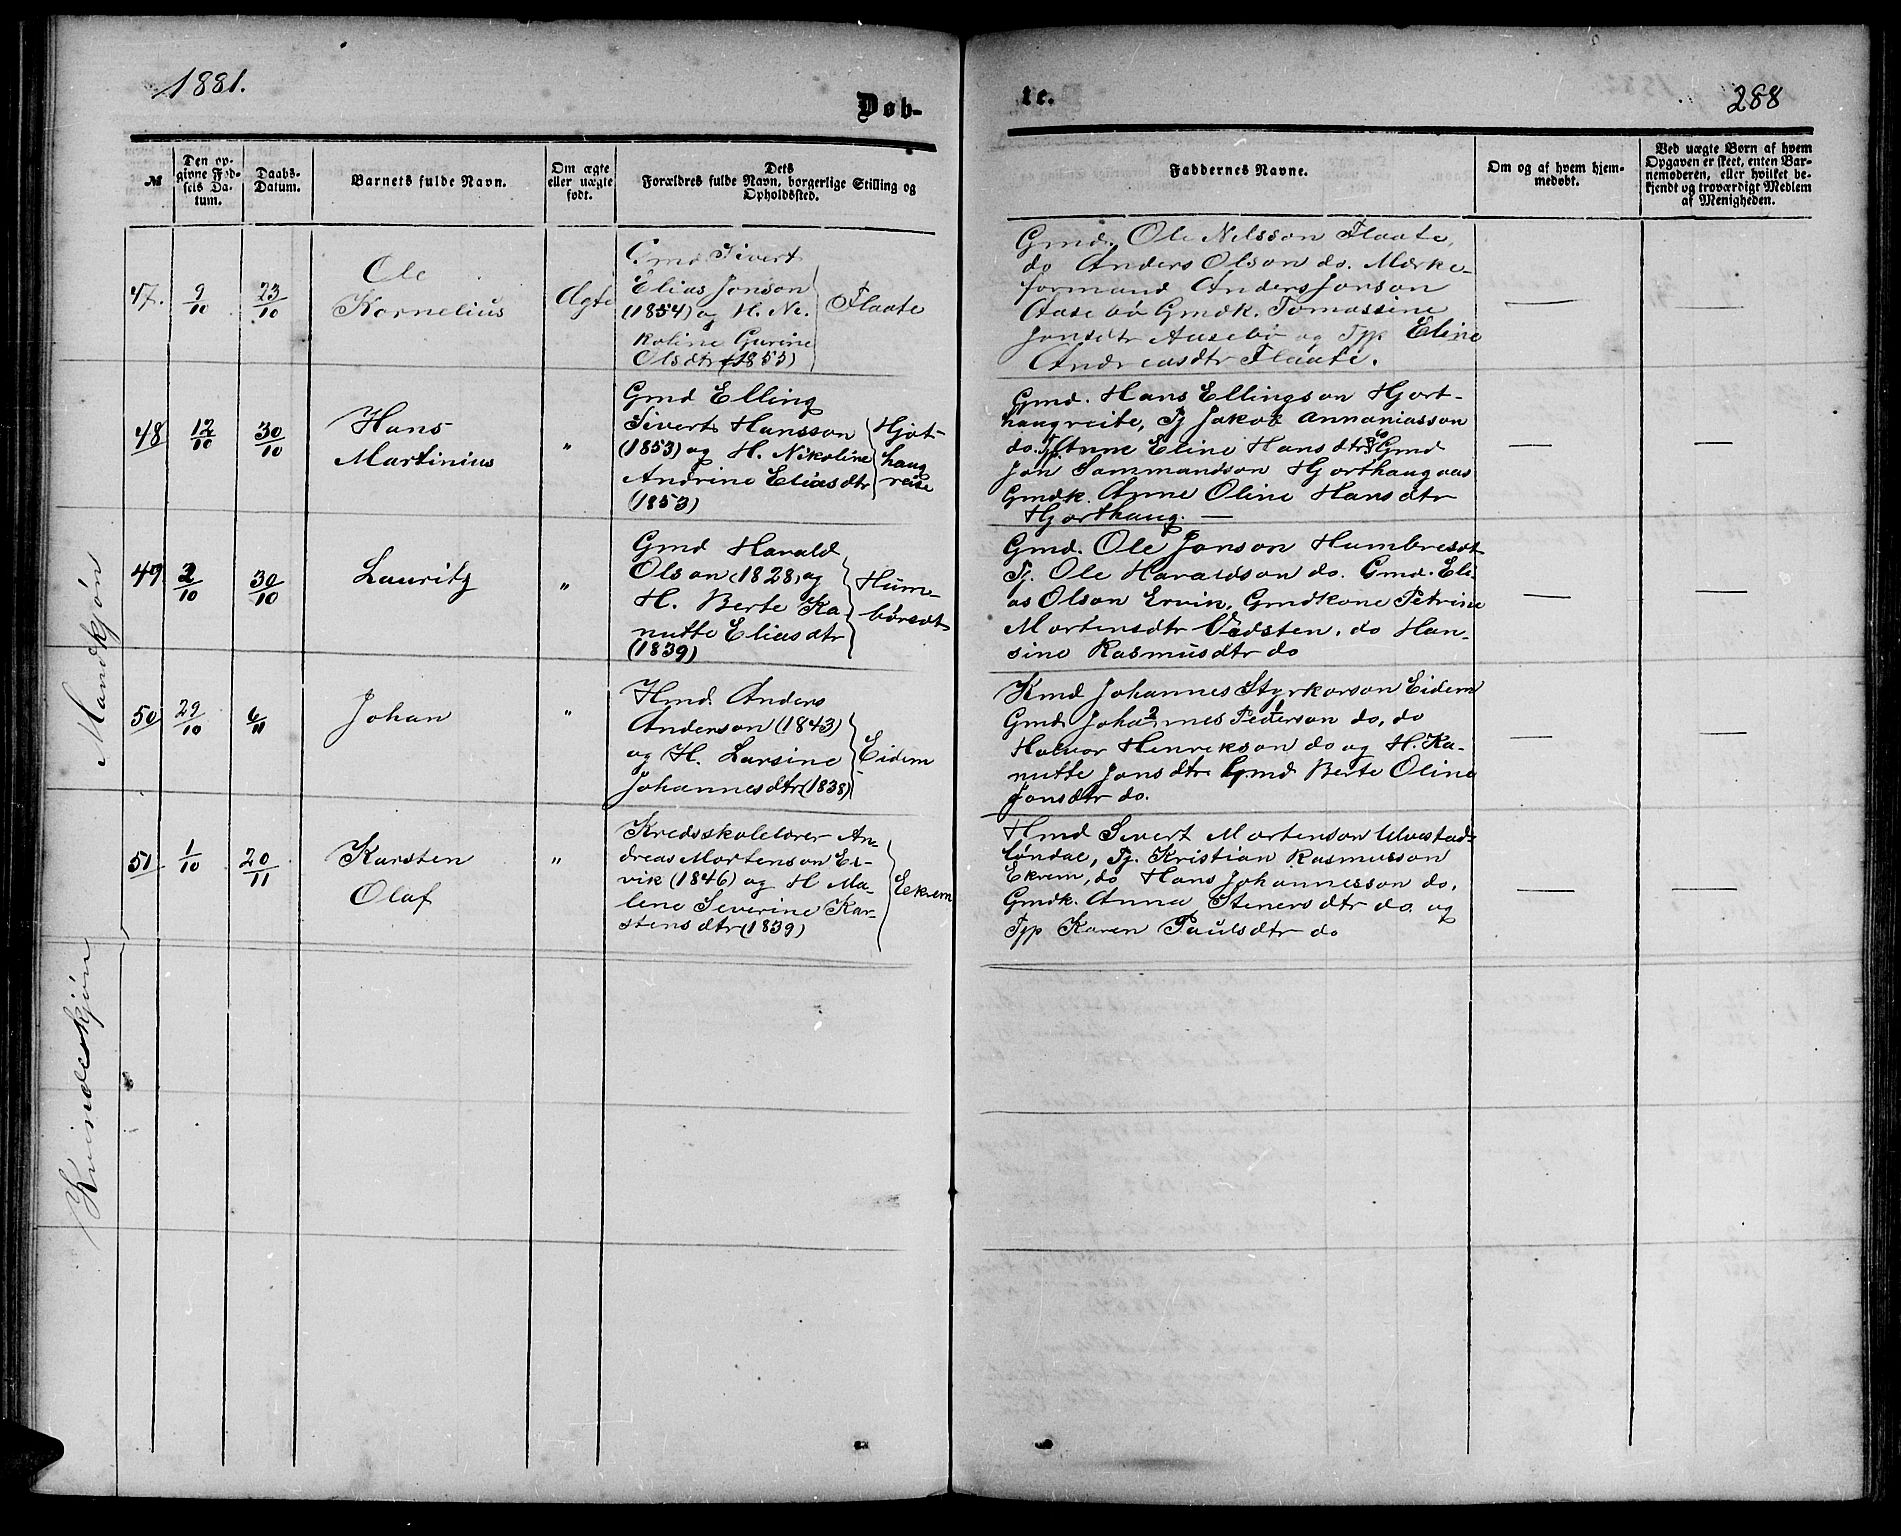 1881.
Døb-
te.
288
№
Den op-
givne Fød-
sels Da-
tum.
Daabs-
Datum.
Barnets fulde Navn.
Om ægte
eller uægte
født.
Dets
Forældres fulde Navn, borgerlige Stilling og
Opholdssted.
Faddernes Navne.
Om og af hvem hjem-
medøbt.
Ved uægte Børn af hvem
Opgaven er skeet, enten Bar-
nemoderen, eller hvilket be-
kjendt og troværdigt Medlem
af Menigheden.
Mandkjøn
47. 9/10 23/10
Ole
Kornelius
Ægte
Gmd. Sivert
Elias Jonson
(1854) og H. Ni-
koline Gurine
Olsdtr (1855)
Flaate
Gmd. Ole Nilsson Flaate,
do Anders Olson do. Mærke-
formand Anders Jonson
Aasebø Gmdk. Tomassine
Jonsdtr Aasebø og Tjp Eline
Andreasdtr Flaate.
— —
48 12/10 30/10
Hans
Martinius
"
Gmd Elling
Sivert Hansson
(1853) og H. Nikoline
Andrine Eliasdtr
(1853)
Hjot-
haug
reise
Gmd. Hans Ellingson Hjort-
haugreite, Tj Jakob Annaniasson
do. Anne Eline Hansdtr do Gmd
Jon Sammandson Hjorthaug aas
Gmdk. Anne Oline Hansdtr
Hjorthaug. —
— —
49 2/10 30/10
Lauritz
"
Gmd Harald
Olson (1828) og
H. Berte Ka
nutte Eliasdtr
(1839)
Hum-
børsæt
Gmd. Ole Jonson Humbresæt
Tj. Ole Haraldson do. Gmd. Eli-
as Olson Ervik, Gmdkone Petrine
Mortensdtr Vedsten, do Han-
sine Rasmusdtr do
— —
50 29/10 6/11
Johan
"
Hmd. Anders
Anderson (1843)
og H. Larsine
Johannesdtr (1838)
Eidem
Kmd Johannes Styrkorson Eidem
Gmd. Johannes Pederson do, do
Halvor Henrikson do og H. Ka-
nutte Jonsdtr Gmd Berte Oline
Jonsdtr do.
— —
51 1/10 20/11
Karsten
Olaf
"
Kredsskolelærer An-
dreas Mortenson Er-
vik (1846) og H Ma-
lene Severine Kar-
stensdtr (1839)
Eekrem
Hmd Sivert Mortenson Ulvestad-
løndal, Tj. Kristian Rasmusson
Ekrem, do Hans Johannesson do,
Gmdk. Anna Stenersdtr do og
Tjp Karen Paulsdtr do
— —
Kvindeskjøn